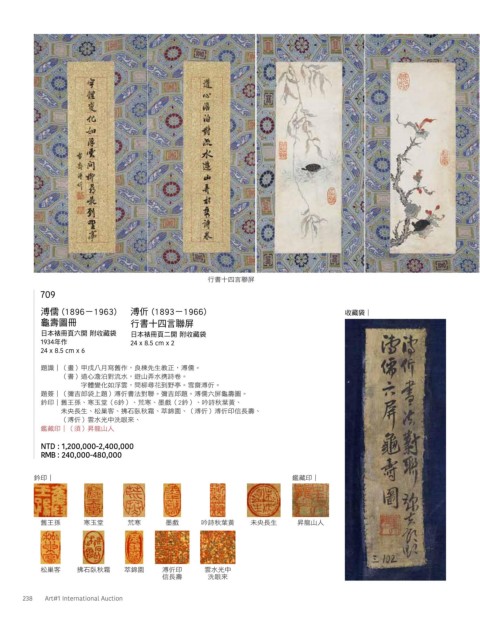 字體變化如浮雲問柳尋花到野亭
雪齋溥伒
道心澹泊對流水遊山弄水攜詩卷
行書十四言聯屏
709
溥儒(1896-1963) 溥伒(1893-1966)
龜壽圖冊 行書十四言聯屏
日本裱冊頁六開 附收藏袋 日本裱冊頁二開 附收藏袋
1934年作 24 x 8.5 cm x 2
24 x 8.5 cm x 6
題識|(畫)甲戌八月寫舊作,良棟先生教正,溥儒。
(書)道心澹泊對流水,遊山弄水攜詩卷。
字體變化如浮雲,問柳尋花到野亭。雪齋溥伒。
題簽|(彌吉郎袋上題)溥伒書法對聯,彌吉郎題。溥儒六屏龜壽圖。
鈐印|舊王孫、寒玉堂(6鈐)、咒寒、墨戲(2鈐)、吟詩秋葉黃、
未央長生、松巢客、拂石臥秋霜、萃錦園、(溥伒)溥伒印信長壽、
(溥伒)雲水光中洗眼來。
鑑藏印|(須)昇龍山人
NTD : 1,200,000-2,400,000
RMB : 240,000-480,000
鈐印| 鑑藏印|
舊王孫 寒玉堂 咒寒 墨戲 吟詩秋葉黃 未央長生 昇龍山人
松巢客 拂石臥秋霜 萃錦園 溥伒印信長壽 雲水光中洗眼來
收藏袋|
溥伒書法對聯
溥儒六屏龜壽圖
238 Art#1 International Auction